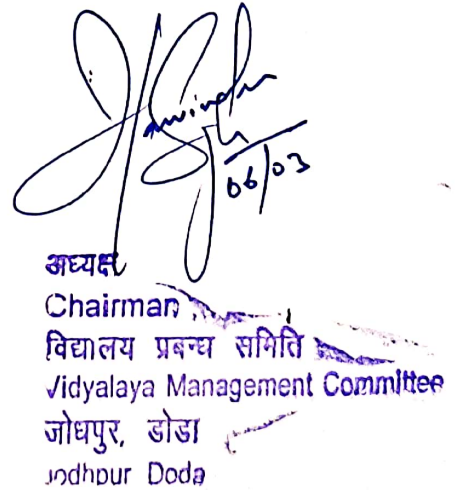 06/03
अध्यक्ष
Chairman
विद्यालय प्रबन्ध समिति
Vidyalaya Management Committee
जोधपुर, डोडा
Jodhpur Doda